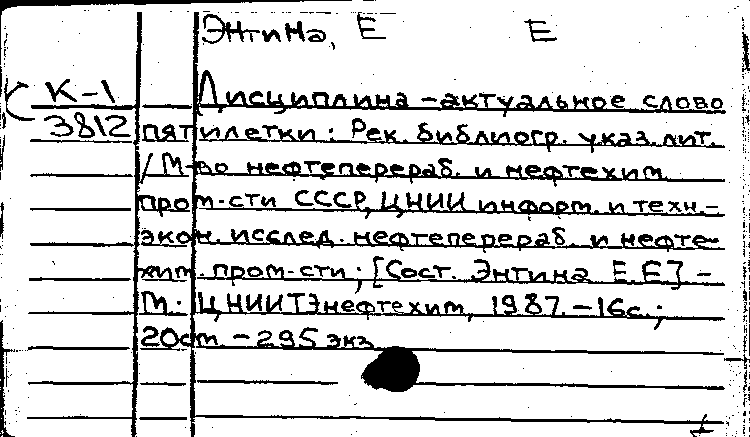 Энтина, Е Е
К-1 Дисциплина – актуальное слово
3812 пятилетки: Рек. библиогр. указ. лит.
/ М-во нефтеперераб. и нефтехим.
пром-сти СССР, ЦНИИ информ. и техн.-
экон. исслед. нефтеперераб. и нефте-
хим. пром-сти; [Сост. Энтина Е.Е] –
М.: ЦНИИТЭнефтехим, 1987. – 16с.;
20см. – 295 экз